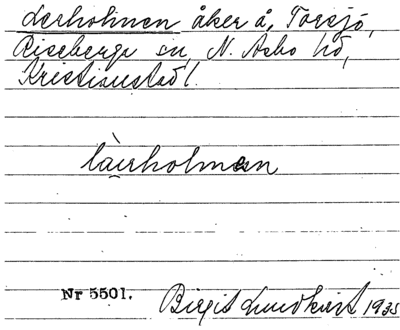 Lerholmen åker å, Torsjö,
Riseberga sn, N. Åsbo hd,
Kristianstad l.
Nr 5501. Birgit Lundkvist 1935